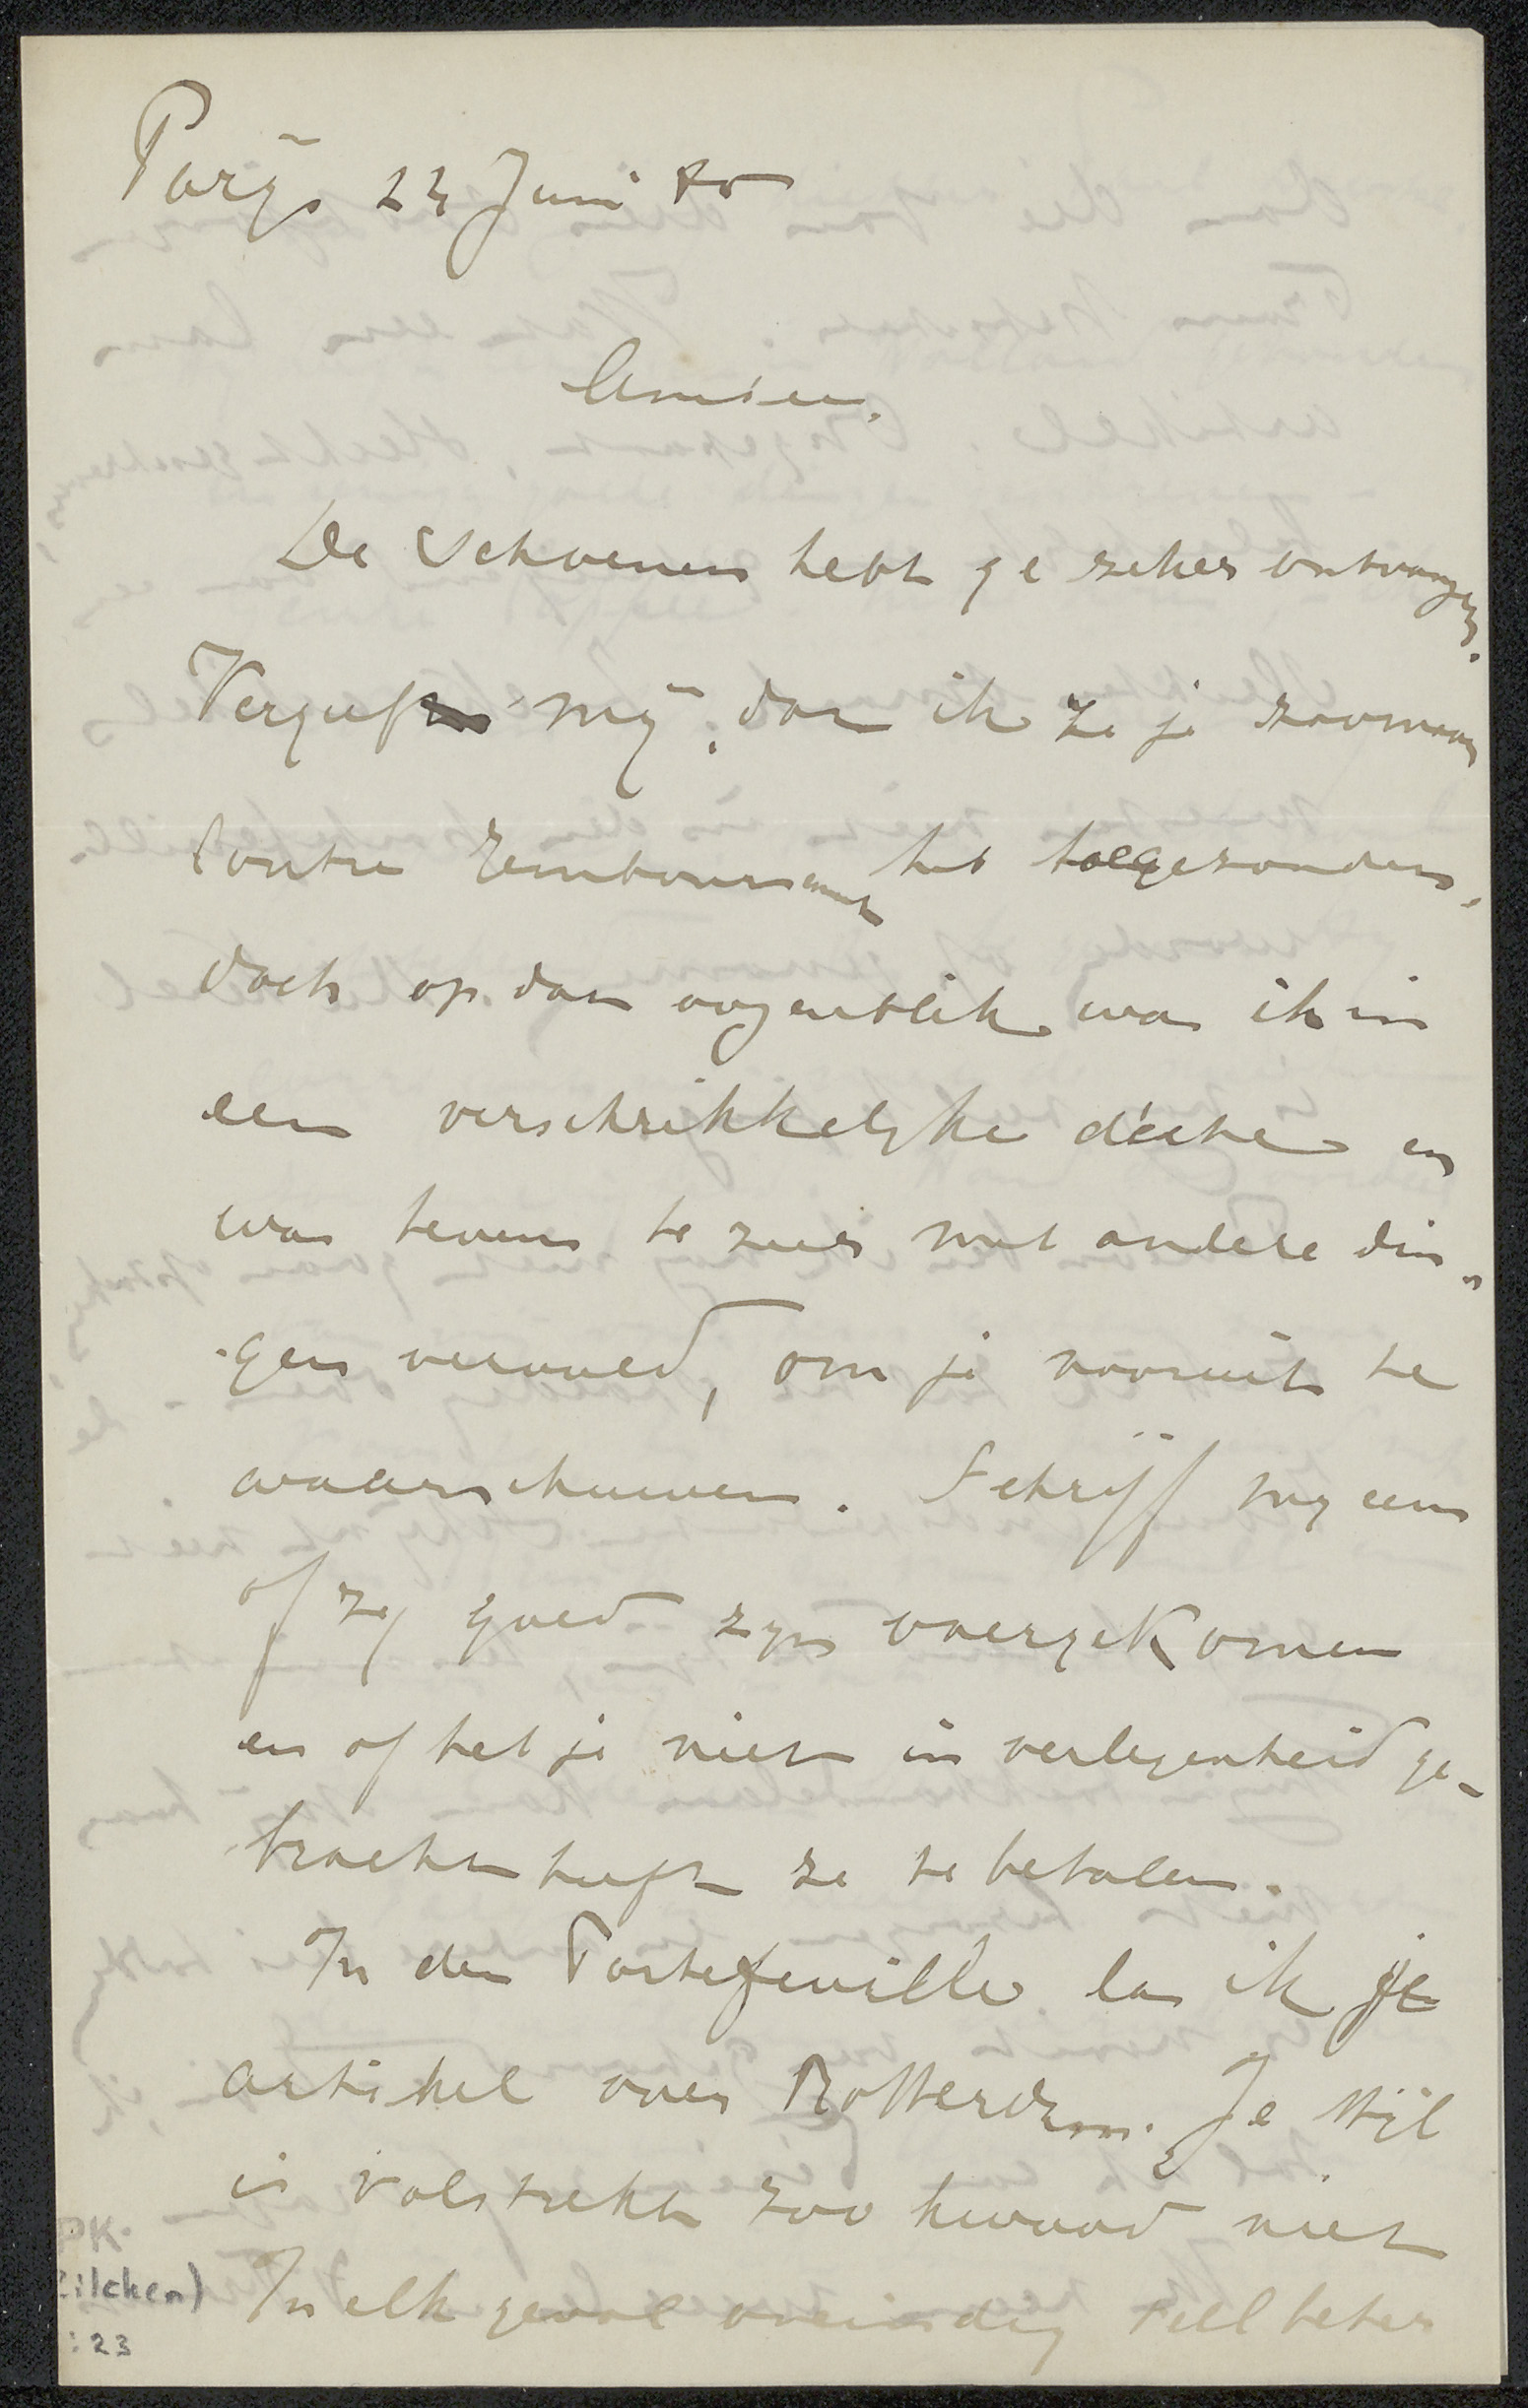 Parijs 23 Juni 80
Amice.
De Schoenen hebt ge zeker ontvangen.
Vergeef mij, dat ik ze je zoomaar
Contre Remboursement heb toegezonden,
doch op dat oogenblik was ik in
een verschrikkelyke dèche en
was tevens te zeer met andere din-
gen vervuld, om je vooruit te
waarschuwen. Schrijf my eens
of zy goed zyn overgekomen
en of het je niet in verlegenheid ge-
bracht heeft ze te betalen.
In den Portefeuille las ik je
artikel over Rotterdam. Je stijl
is volstrekt zoo kwaad niet
In elk geval oneindig veel beter
PK.
Zilcken)
:23